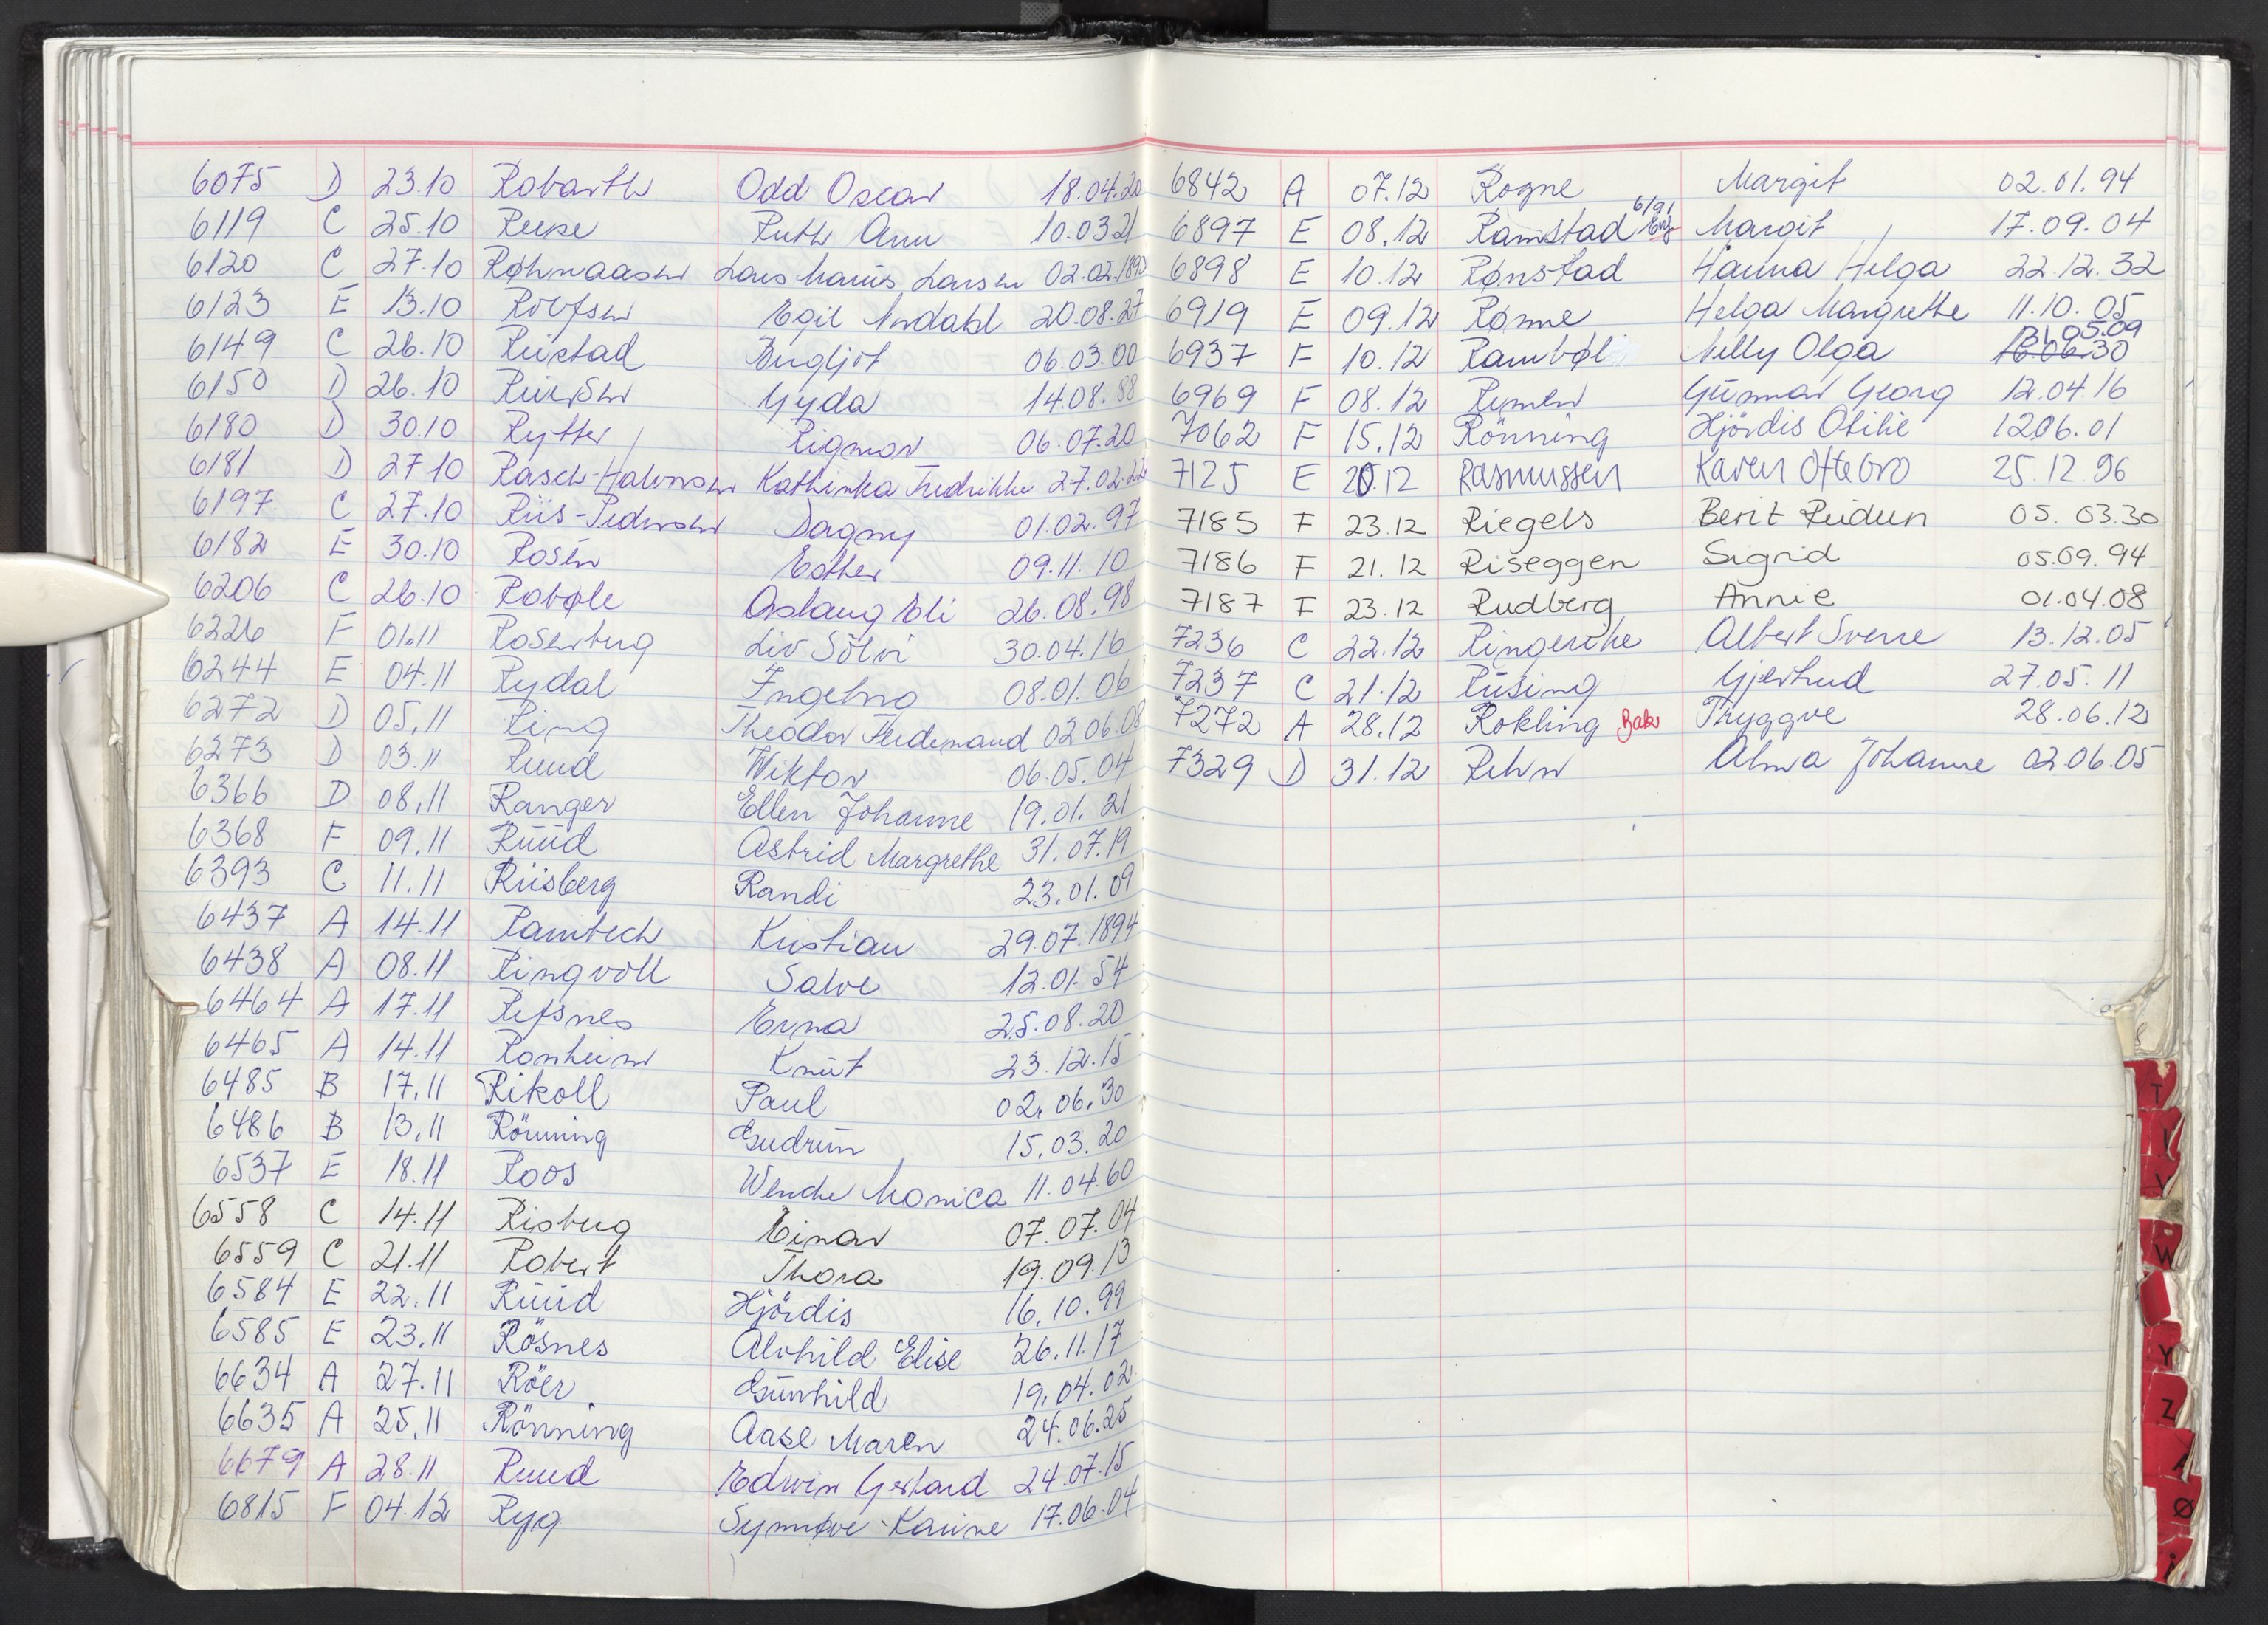 6075 D 23.10 Robarth Odd Oscar 18.04.20
6119 C 25.10 Ruth Ann 10.03.21
6120 C 27.10 Røhmaasen Lars Marius Larsen 02.02.1890
6123 E 13.10 Rolfsen Egil Andahl 20.08.27
6149 C 26.10 Rustad Bergljot 06.03.00
6150 D 26.10 Gyda 14.08.88
6180 D 30.10 Rytter Rigmor 06.07.20
6181 D 27.10 Rasch-Halvorsen Kathinka Fredrikke 27.02.22
6197 C 27.10 Riis-Pedersen Dagny 01.02.97
6182 E 30.10 Rosén Esther 09.11.10
6206 C 26.10 Robøle Aslaug Eli 26.08.98
6226 F 01.11 Rosenberg Liv Sölvi 30.04.16
6244 E 04.11 Rydal Ingebrg 08.01.06
6272 D 05.11 Ring Theodor Ferdinand 02.06.08
6273 D 03.11 Ruud Wiktor 06.05.04
6366 D 08.11 Ranger Ellen Johanne 19.01.21
6368 F 09.11 Ruud Astrid Margrethe 31.07.19
6393 C 11.11 Riisberg Randi 23.01.09
6437 A 14.11 Rambech Kristian 29.07.1894
6438 A 08.11 Ringvoll Salve 12.01.54
6464 A 17.11 Refsnes Erna 25.08.20
6465 A 14.11 Ronheim Knut 23.12.15
6485 B 17.11 Rikoll Paul 02.06.30
6486 B 13.11 Rönning Gudrun 15.03.20
6537 E 18.11 Roos Wenche Monica 11.04.60
6558 C 14.11 Risberg Einar 07.07.04
6559 C 21.11 Robert Thora 19.09.13
6584 E 22.11 Ruud Hjördis 16.10.99
6585 E 23.11 Rösnes Alvhild Elise 26.11.17
6634 A 27.11 Röer Gunhild 19.04.02
6635 A 25.11 Rönning Aase Maren 24.06.25
6679 A 28.11 Ruud Edwin Gerhard 24.07.15
6815 F 04.12 Ryg Synnøve Karine 17.06.04
6842 A 07.12 Rogne Margit 02.01.94
6897 E 08.12 Ramstad 6/91 Margit 17.09.04
6898 E 10.12 Rønstad Hanna Helga 22.12.32
6919 E 09.12 Rønne Helga Margrethe 11.10.05
6937 F 10.12 Rambøl Nelly Olga 16.06.30 13.05.09
6969 F 08.12 Remen Gunnar Georg 12.04.16
7062 F 15.12 Rönning Hjördis Otilie 12.06.01
7125 E 20.12 Rasmussen Karen Oftebro 25.12.96
7185 F 23.12 Riegels Berit Reidun 05.03.30
7186 F 21.12 Riseggen Sigrid 05.09.94
7187 F 23.12 Rudberg Annie 01.04.08
7236 C 22.12 Ringerike Albert Sverre 13.12.05
7237 C 21.12 Rusing Gjertrud 27.05.11
7272 A 28.12 Rokling Bak Tryggve 28.06.12
7329 D 31.12 Rehn Alma Johanne 02.06.05
T
V
W
Y
Z
Ø